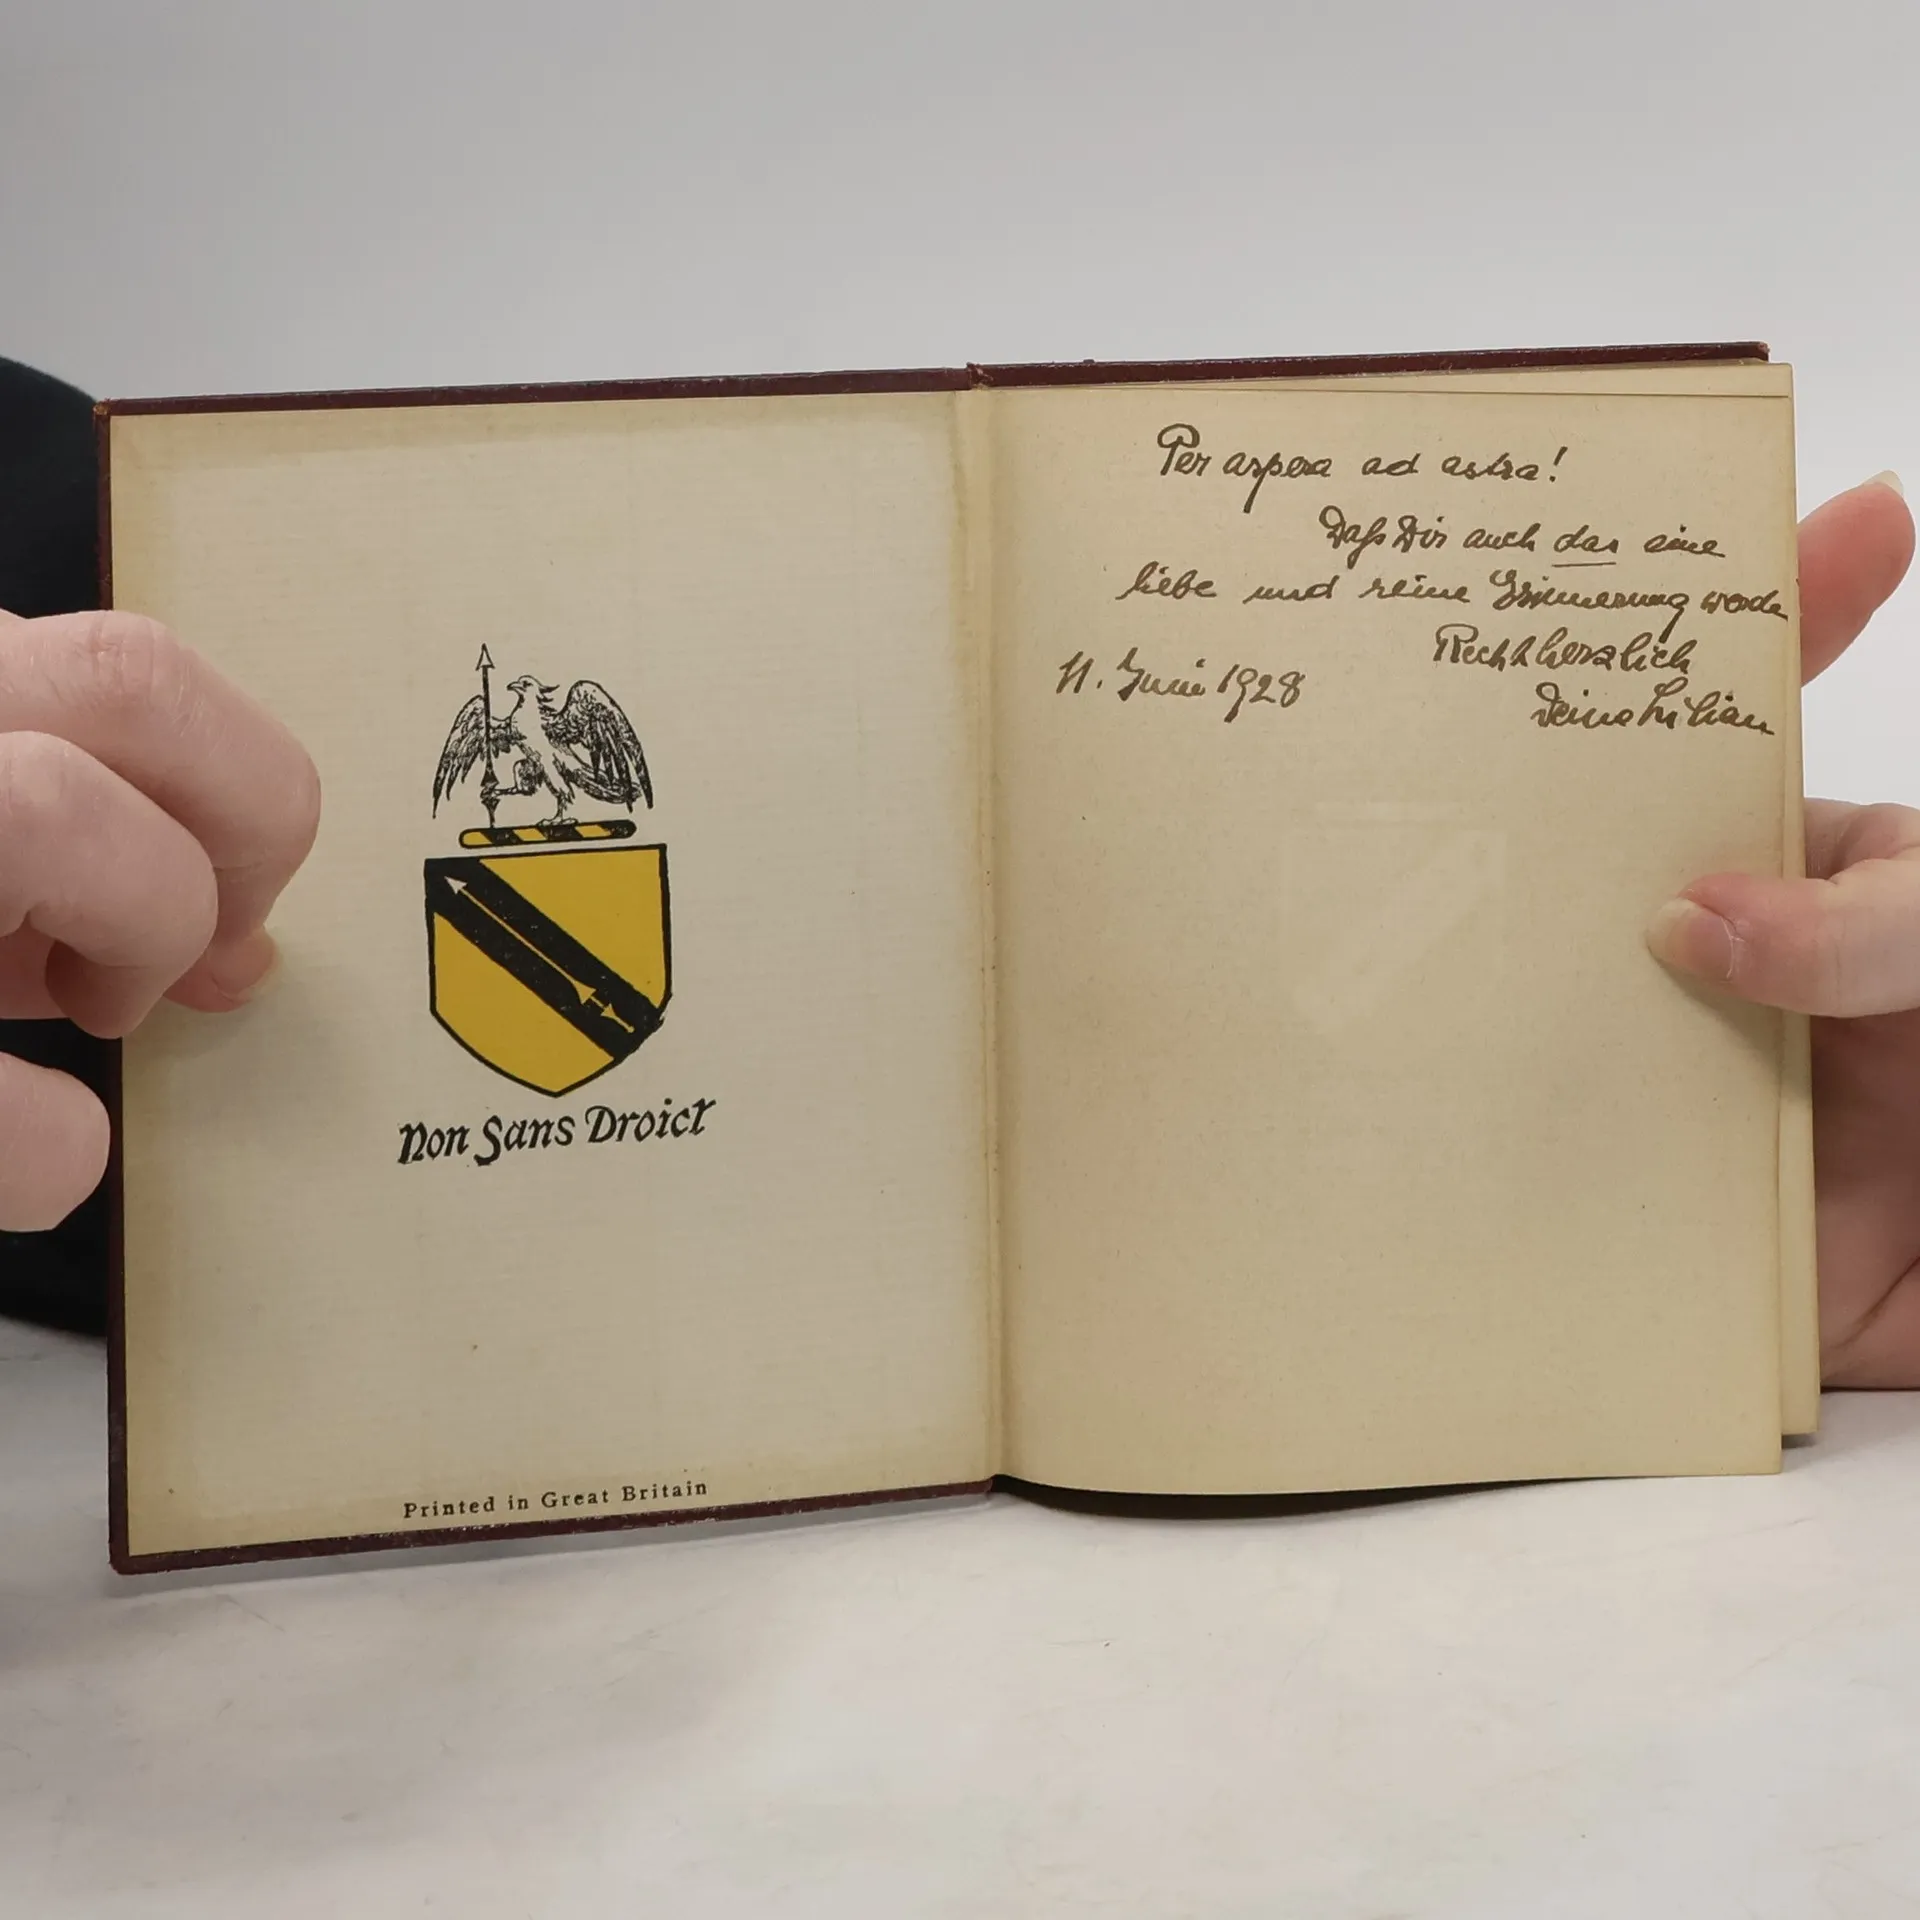 Non Sans Droict
Printed in Great Britain
Per aspera ad astra!
Daß Dir auch das eine
liebe und reine Erinnerung werde
Recht herzlich
11. Juni 1928
Deine Lilian